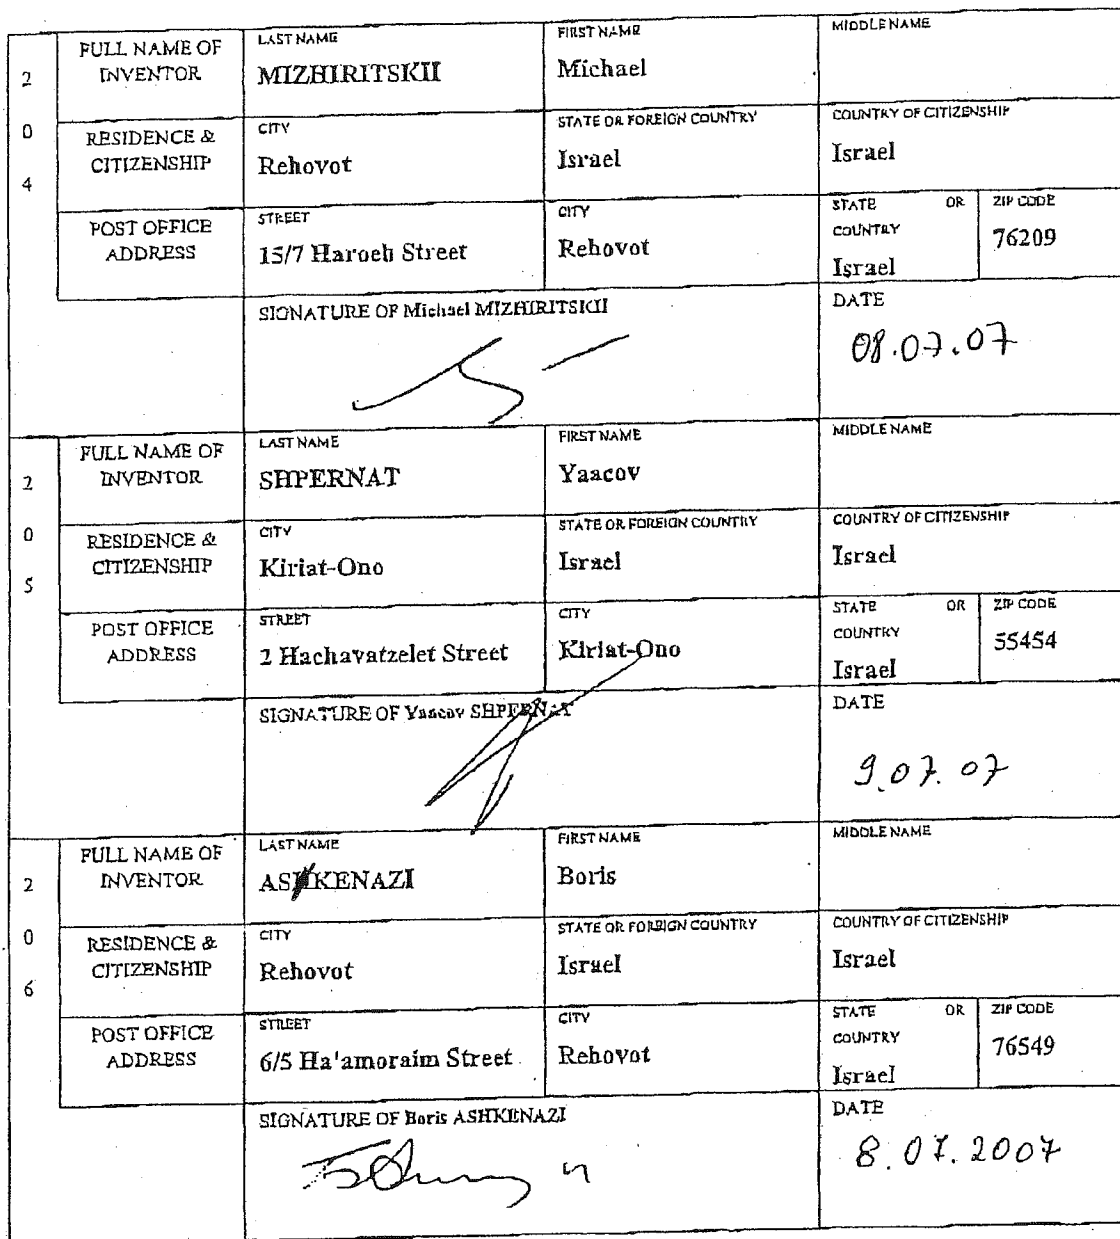 2 0 4
FULL NAME OF INVENTOR
LAST NAME
MIZHIRITSKII
FIRST NAME
Michael
MIDDLE NAME
RESIDENCE & CITIZENSHIP
CITY
Rehovot
STATE OR FOREIGN COUNTRY
Israel
COUNTRY OF CITIZENSHIP
Israel
POST OFFICE ADDRESS
STREET
15/7 Haroeh Street
CITY
Rehovot
STATE OR COUNTRY
Israel
ZIP CODE
76209
SIGNATURE OF Michael MIZHIRITSKII
DATE
08.07.07
2 0 5
FULL NAME OF INVENTOR
LAST NAME
SHPERNAT
FIRST NAME
Yaacov
MIDDLE NAME
RESIDENCE & CITIZENSHIP
CITY
Kiriat-Ono
STATE OR FOREIGN COUNTRY
Israel
COUNTRY OF CITIZENSHIP
Israel
POST OFFICE ADDRESS
STREET
2 Hachavatzelet Street
CITY
Kiriat-Ono
STATE OR COUNTRY
Israel
ZIP CODE
55454
SIGNATURE OF Yaacov SHPERNAT
DATE
9.07.07
2 0 6
FULL NAME OF INVENTOR
LAST NAME
ASHKENAZI
FIRST NAME
Boris
MIDDLE NAME
RESIDENCE & CITIZENSHIP
CITY
Rehovot
STATE OR FOREIGN COUNTRY
Israel
COUNTRY OF CITIZENSHIP
Israel
POST OFFICE ADDRESS
STREET
6/5 Ha'amoraim Street
CITY
Rehovot
STATE OR COUNTRY
Israel
ZIP CODE
76549
SIGNATURE OF Boris ASHKENAZI
DATE
8.07.2007